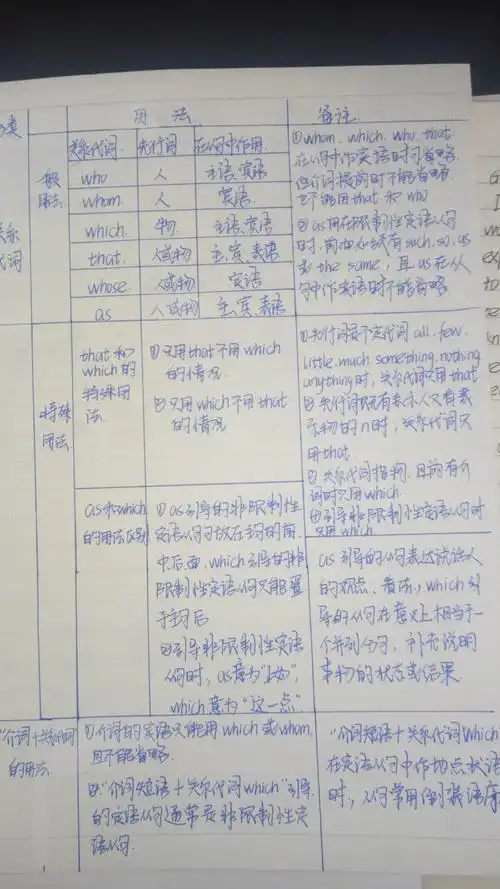 类
用法
备注
关系代词
一般用法
关系代词 先行词 在从句中作用
who 人 主语、宾语
whom 人 宾语
which 物 主语、宾语
that 人或物 主、宾、表语
whose 人或物 定语
as 人或物 主、宾、表语
①whom、which、who、that
在从句中作宾语时可省略
但介词提前时不能省略
也不能用that和who
②as用在限制性定语从句
时,前面必须有such、so、as
或the same,且as在从
句中作宾语时不能省略
特殊用法
that和
which的
特殊用
法
①只用that不用which
的情况
②只用which不用that
的情况
①先行词是不定代词all、few、
little、much、something、nothing
anything时,关系代词只用that
②先行词既有表示人又有表
示物的n时,关系代词只
用that
①关系代词指物,且前有介
词时只用which
②引导非限制性定语从句时
只用which
as和which
的用法区别
①as引导的非限制性
定语从句可放在主句的前
中后面,which引导的非
限制性定语从句只能置
于主句后
②引导非限制性定语
从句时,as意为“正如”,
which意为“这一点”
as引导的从句表达说话人
的观点、看法,which引
导的从句在意义上相当于一
个并列分句,补充说明
事物的状态或结果
“介词+关系代词”
的用法
①介词的宾语只能用which或whom,
且不能省略
②“介词短语+关系代词which”引导
的定语从句通常是非限制性定
语从句
“介词短语+关系代词which”
在定语从句中作地点状语
时,从句常用倒装语序